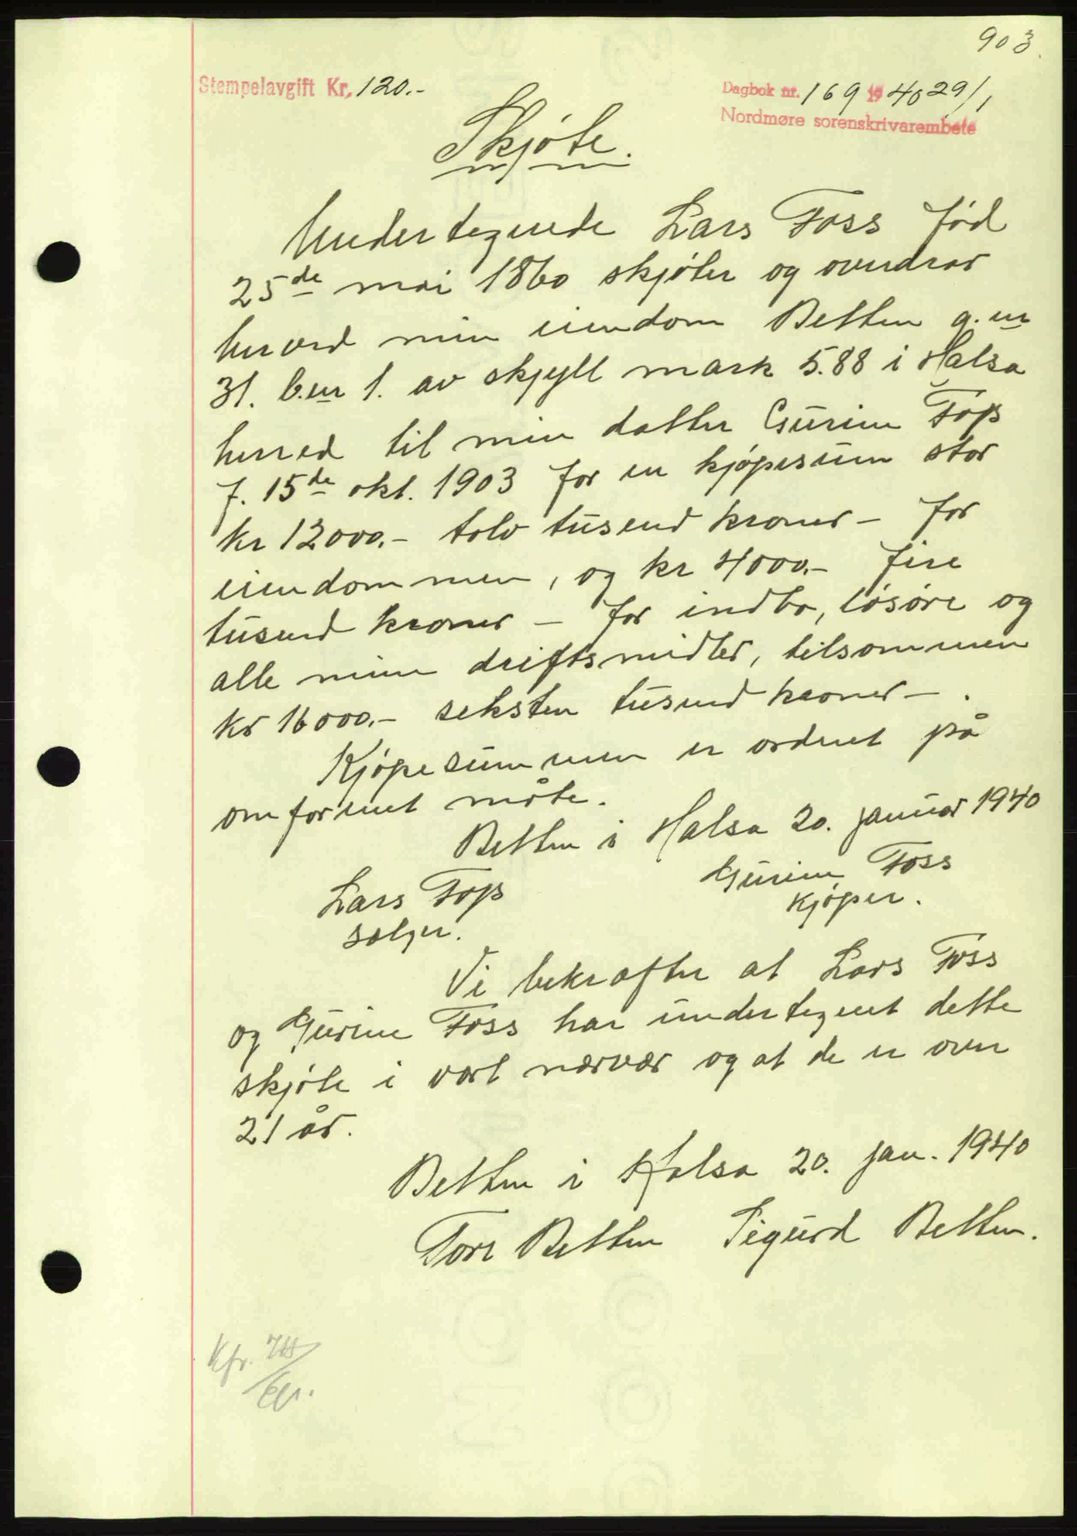 903.
Stempelavgift Kr. 120.-
Dagbok nr. 169 1940 29/1
Nordmøre sorenskrivarembete
Skjøte.
Undertegnede Lars Foss fød
25de mai 1860 skjøter og overdrar
herved min eiendom Betten g.nr
31. b.nr 1. av skyll mark 5.88 i Halsa
herred til min datter Gurine Foss
f. 15de okt. 1903 for en kjøpesum stor
kr 12000.- tolv tusend kroner - for
eiendommen, og kr 4000.- fire
tusend kroner - for indbo, løsøre og
alle mine driftsmidler, tilsommen
kr 16000.- seksten tusend kroner - .
Kjøpesummen er ordnet på
omforenet måte.
Betten i Halsa 20. januar 1940
Lars Foss Gurine Foss
selger. Kjøper.
Vi bekrefter at Lars Foss
og Gurine Foss har undertegnet dette
skjøte i vort nærvær og at de er over
21 år.
Betten i Halsa 20. jan. 1940
Tore Betten Sigurd Betten.
Kfr.